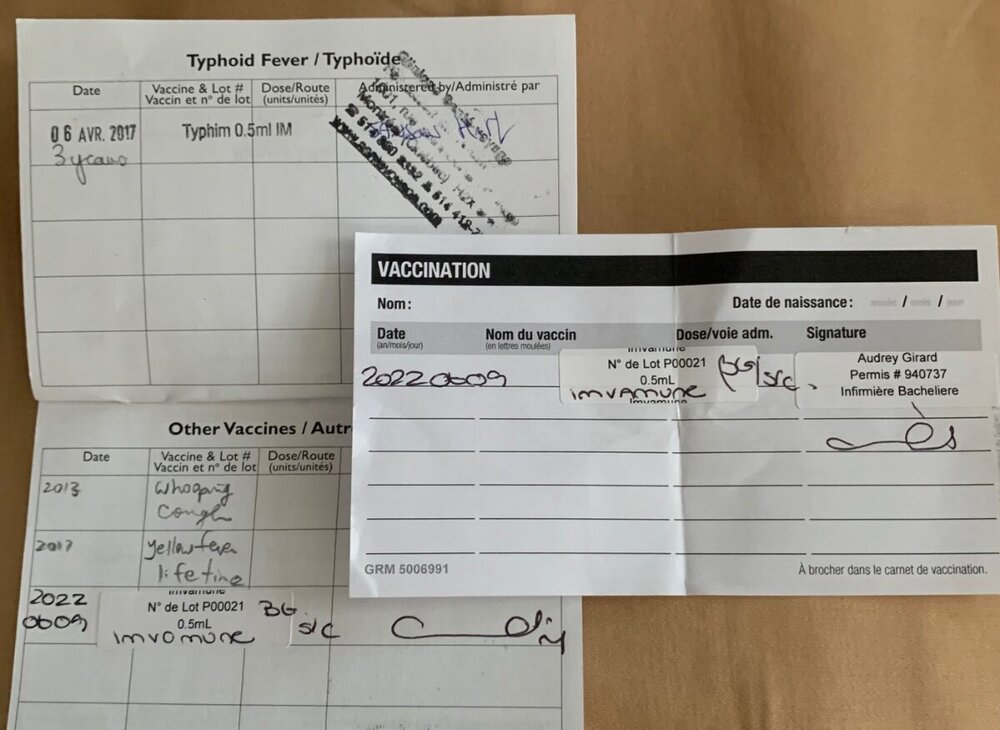 Typhoid Fever / Typhoïde
Date
Vaccine & Lot # Dose/Route Administered by/Administré par
Vaccin et n° de lot (units/unités)
06 AVR. 2017 Typhim 0.5ml IM
3 years
Montréal (Québec) H2X
VACCINATION
Nom: Date de naissance: année / mois / jour
Date Nom du vaccin Dose/voie adm. Signature
(an/mois/jour) (en lettres moulées)
Imvamune
20220609 N° de Lot P00021 BG s/c.
0.5mL
imvamune
Imvamune
Audrey Girard
Permis # 940737
Infirmière Bacheliere
GRM 5006991 À brocher dans le carnet de vaccination.
Other Vaccines / Autr
Date
Vaccine & Lot # Dose/Route
Vaccin et n° de lot (units/unités)
2013 Whooping
Cough
2017 Yellow fever
lifetime
Imvamune
2022 N° de Lot P00021 BG
0609 0.5mL s/c
imvamune